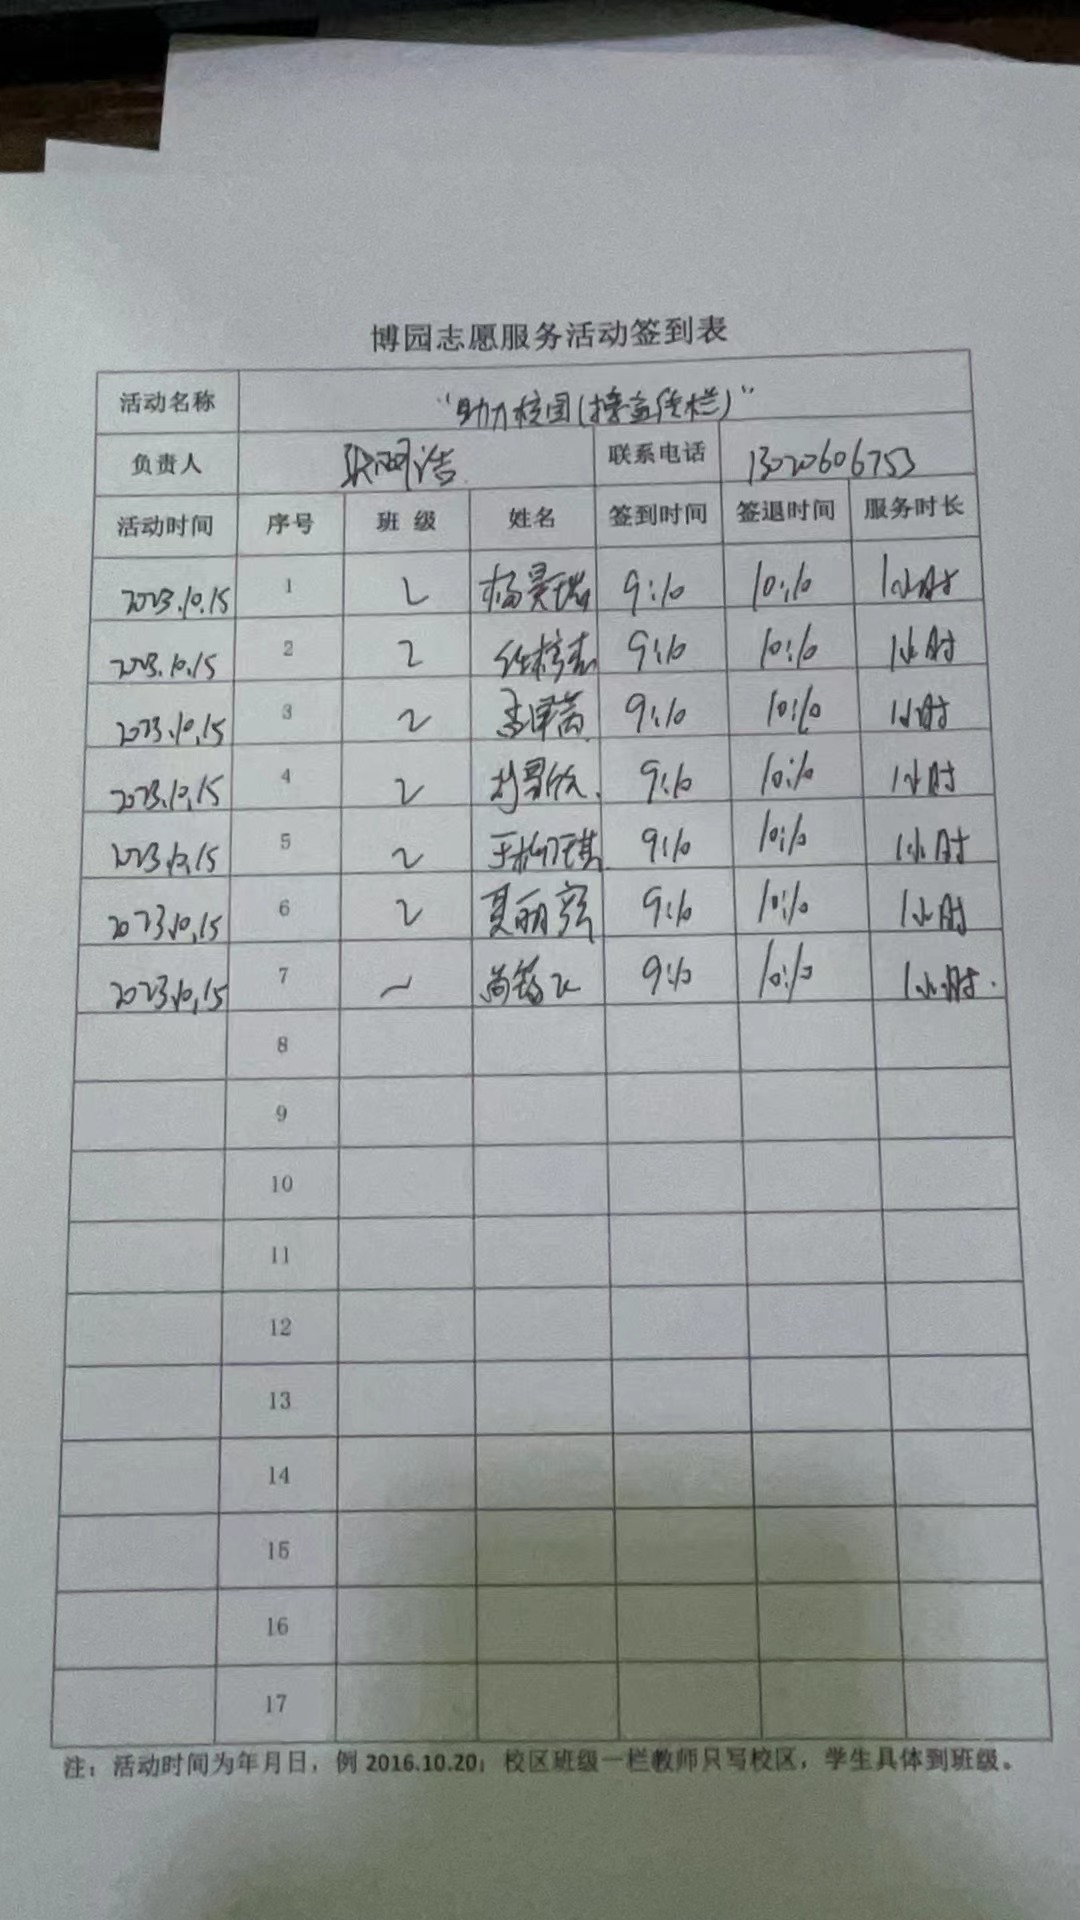 博园志愿服务活动签到表
活动名称 "助力校园(擦宣传栏)"
负责人 联系电话 13020606753
活动时间 序号 班级 姓名 签到时间 签退时间 服务时长
2023.10.15 1 2 杨昊瑞 9:10 10:10 1小时
2023.10.15 2 2 9:10 10:10 1小时
2023.10.15 3 2 9:10 10:10 1小时
2023.10.15 4 2 9:10 10:10 1小时
2023.10.15 5 2 9:10 10:10 1小时
2023.10.15 6 2 夏丽 9:10 10:10 1小时
2023.10.15 7 9:10 10:10 1小时.
8
9
10
11
12
13
14
15
16
17
注：活动时间为年月日，例 2016.10.20；校区班级一栏教师只写校区，学生具体到班级。